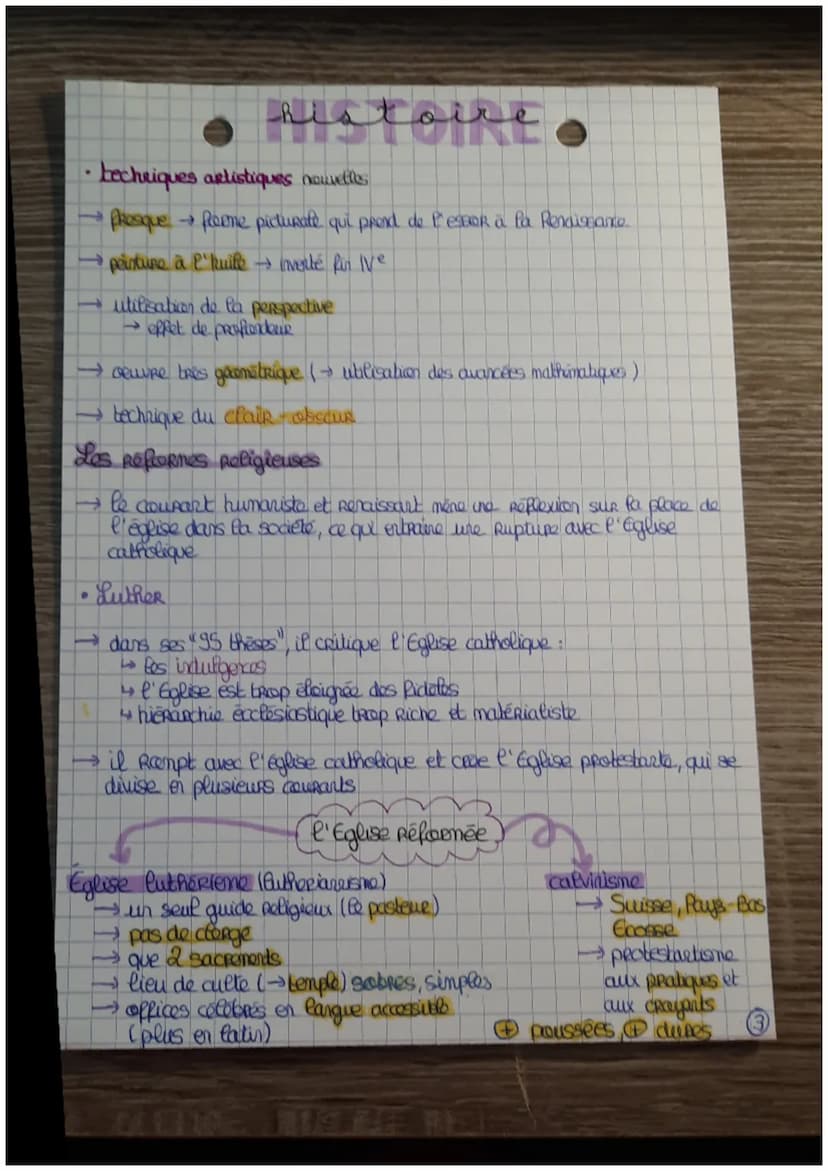 HISTOIRE
histoire
• techniques artistiques nouvelles
→ fresque → forme picturale qui prend de l'essor à la Renaissance
→ peinture à l'huile → inventé fin IVe
→ utilisation de la perspective
→ effet de profondeur
→ oeuvre très géométrique (→ utilisation des avancées mathématiques)
→ technique du clair-obscur
Les Réformes Religieuses
→ le courant humaniste et renaissant mène une réflexion sur la place de
l'église dans la société, ce qui entraine une rupture avec l'Église
catholique
• Luther
→ dans ses "95 thèses", il critique l'Eglise catholique :
↳ les indulgences
↳ l'Eglise est trop éloignée des fidèles
↳ hiérarchie écclésiastique trop riche et matérialiste
→ il rompt avec l'église catholique et crée l'Eglise protestante, qui se
divise en plusieurs courants
l'Eglise Réformée
Église luthérienne (luthérianisme)
→ un seul guide religieux (le pasteur)
→ pas de clergé
→ que 2 sacrements
→ lieu de culte (→ temple) sobres, simples
→ offices célébrés en langue accessible
(plus en latin)
calvinisme
→ Suisse, Pays-Bas
Ecosse
→ protestantisme
aux pratiques et
aux croyants
⊕ poussées, ⊕ dures
3